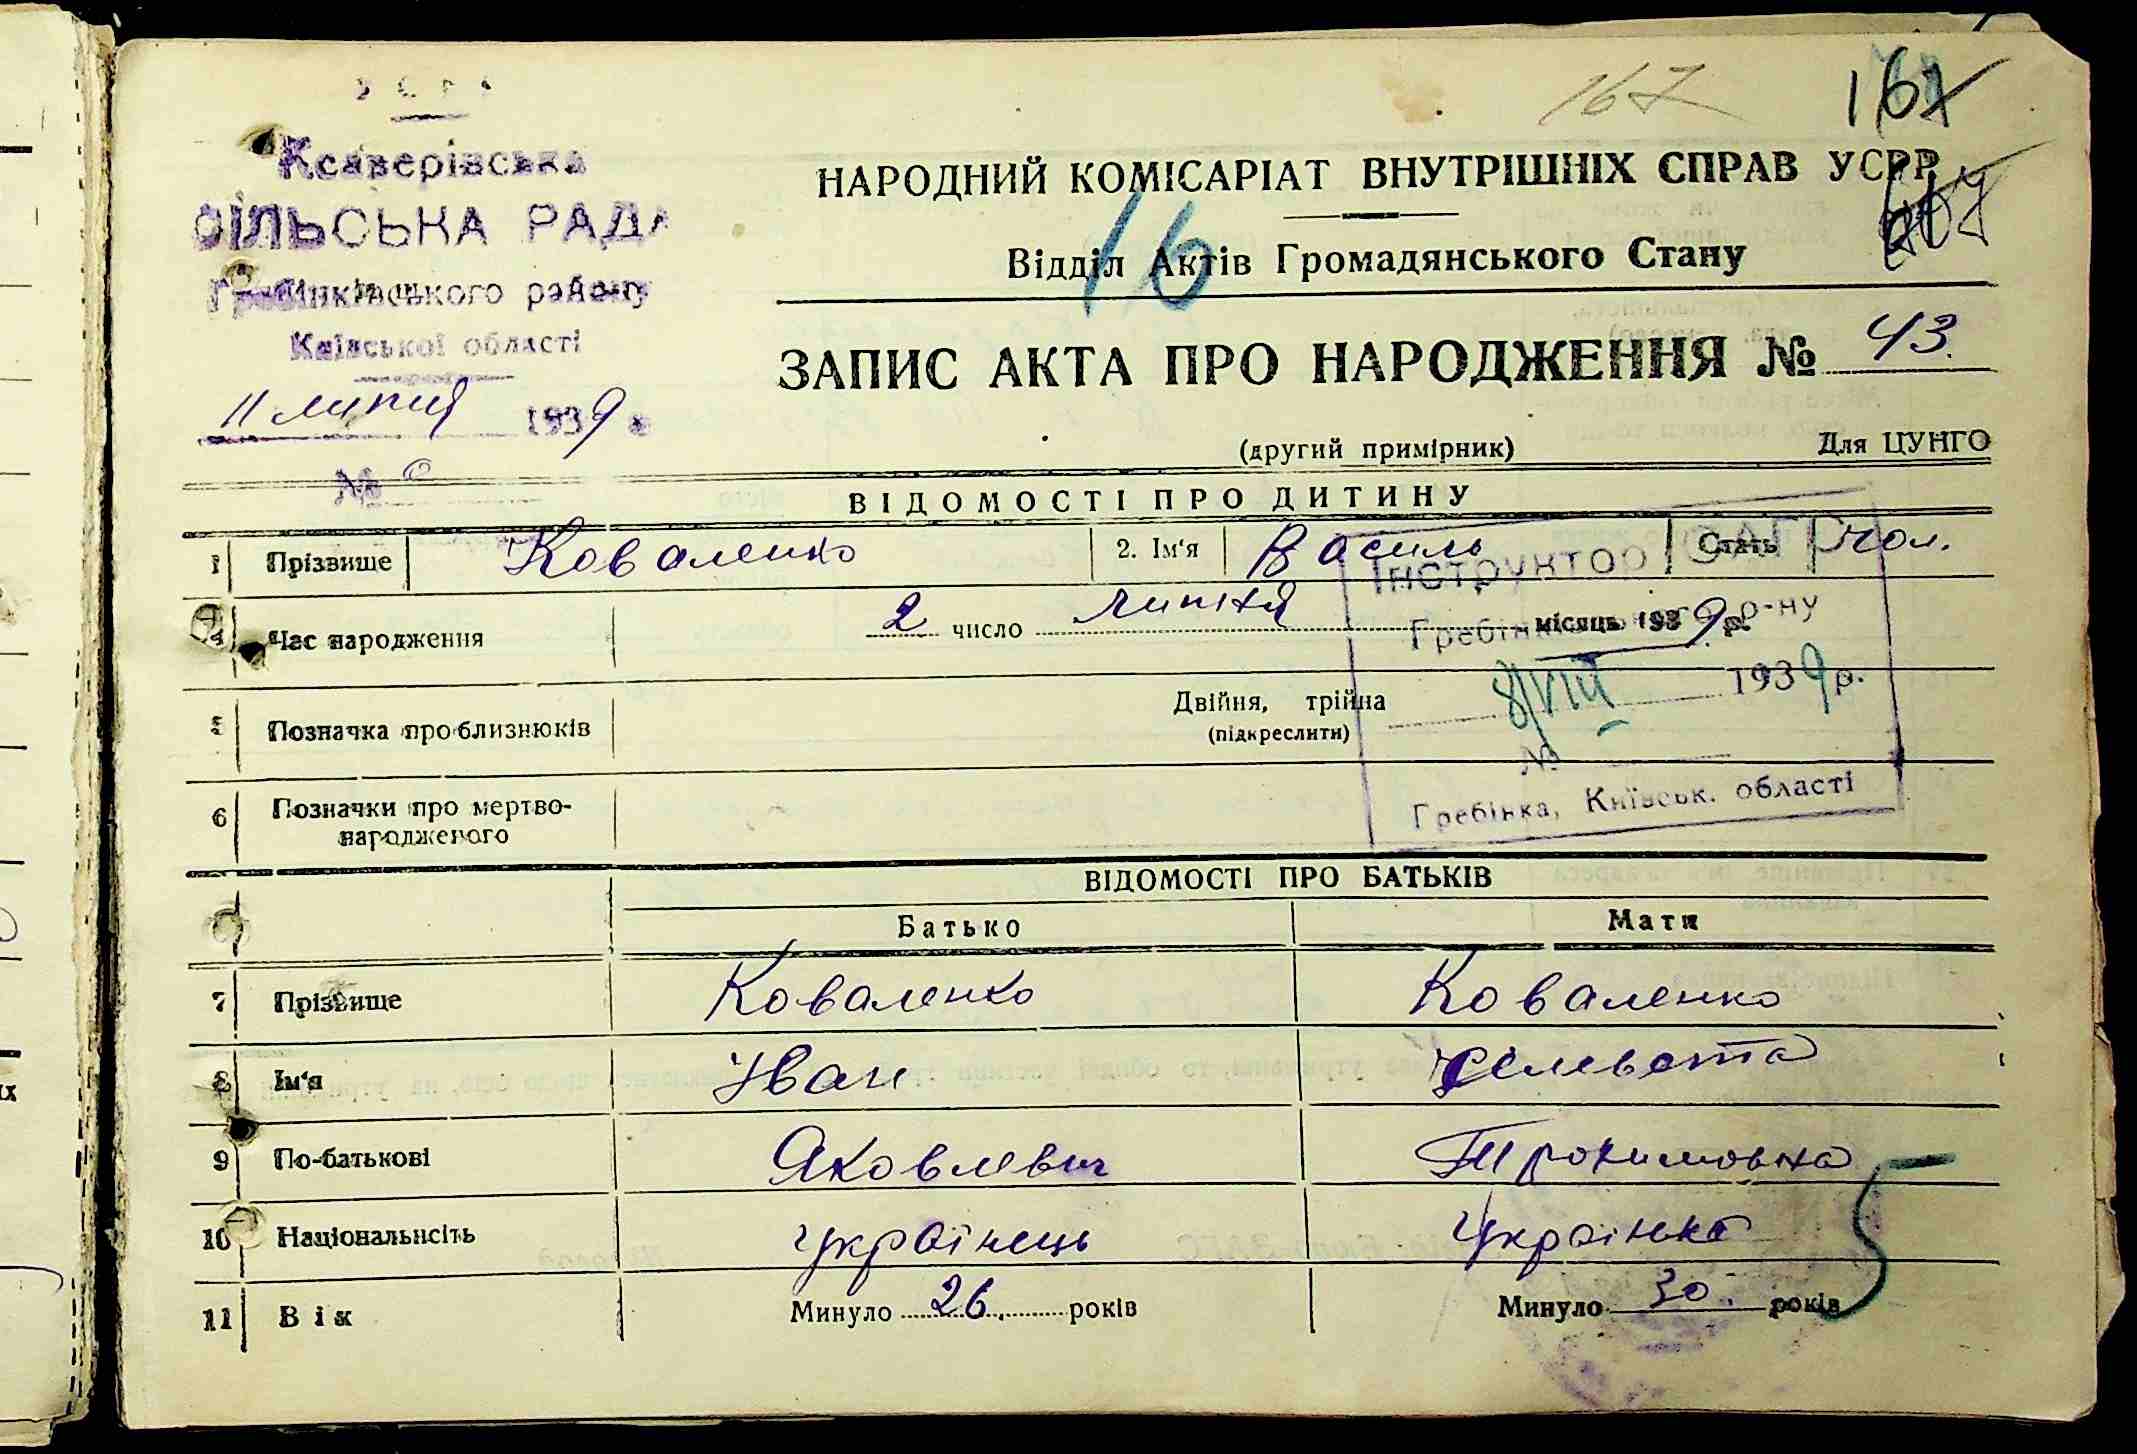 УСРР
167 167
Ксаверівська
СІЛЬСЬКА РАДА
Гребінківського району
Київської області
11 липня 1939 р.
№
НАРОДНИЙ КОМІСАРІАТ ВНУТРІШНІХ СПРАВ УСРР
16
Відділ Актів Громадянського Стану
ЗАПИС АКТА ПРО НАРОДЖЕННЯ № 43.
(другий примірник) Для ЦУНГО
ВІДОМОСТІ ПРО ДИТИНУ
1 Прізвище Коваленко 2. Ім'я Василь Стать чол.
Інструктор ЗАГС
4 Час народження 2 число липня місяць 1939 р.
Гребінківського р-ну
8/VIII 1939 р.
5 Позначка про близнюків Двійня, трійна
(підкреслити)
№
6 Позначки про мертво-
народженого
Гребінка, Київськ. області
ВІДОМОСТІ ПРО БАТЬКІВ
Батько Мати
7 Прізвище Коваленко Коваленко
8 Ім'я Іван
9 По-батькові Яковлевич Трохимовна
10 Національнсіть українець українка
5
11 Вік Минуло 26. років Минуло 30. років